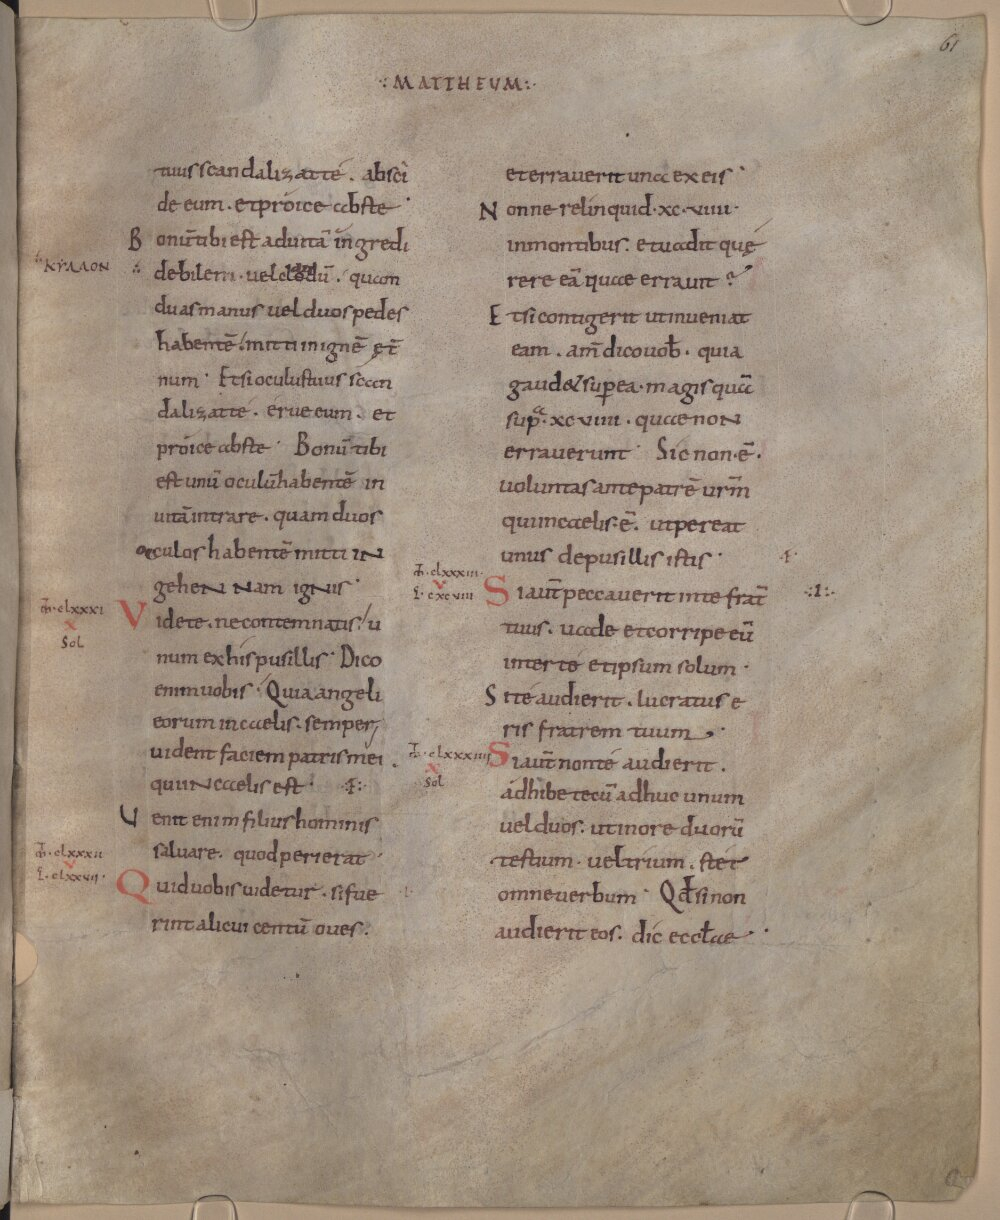 61
∴MATTHEUM:·
tuus scandalizat té. absci
de eum. et próice abs te
Bonū tibi est ad uitā ingredi
∴ΚΥΛΛΟΝ
debilem. uel clodū. quam
duas manus uel duos pedes
habentē. mitti in ignē ęt̄
num. Et si oculus tuus scan
dalizat té. erue eum. et
próice abs te. Bonū tibi
est unū oculū habentē in
uitā intrare. quam duos
oculos habentē mitti in
gehennam ignis
clxxxi
x
Sol
Videte. ne contemnatis. u
num ex his pusillis. Dico
enim uobis. Quia angeli
eorum in caelis. semper
uident faciem patris mei
qui in caelis est
Uenit enim filius hominis
saluare. quod perierat
clxxxii
v
L. clxxvii
Quid uobis uidetur. si fue
rint alicui centū oues.
et errauerit una ex eis
Nonne relinquid. xc. viiii.
in montibus. et uadit quę
rere eā quae errauit?
Et si contigerit ut inueniat
eam. am̄ dico uob. quia
gaudet super ea. magis quā
supra. xc viiii. quae non
errauerunt. Sic non. ē.
uoluntas ante patrē urm̄
qui in caelis. ē. ut pereat
unus de pusillis istis
clxxxiii
v
L. cxcviiii
Si aut̄ peccauerit in te frat̄
·:1:·
tuus. uade et corripe eū
inter té et ipsum solum.
Si té audierit. lucratus e
ris fratrem tuum
clxxxiiii
x
Sol
Si aut̄ non té audierit.
ádhibe tecū adhuc unum
uel duos. ut in ore duorū
testium. uel trium. stet
omne uerbum. Qđ si non
audierit eos. dic eccłae